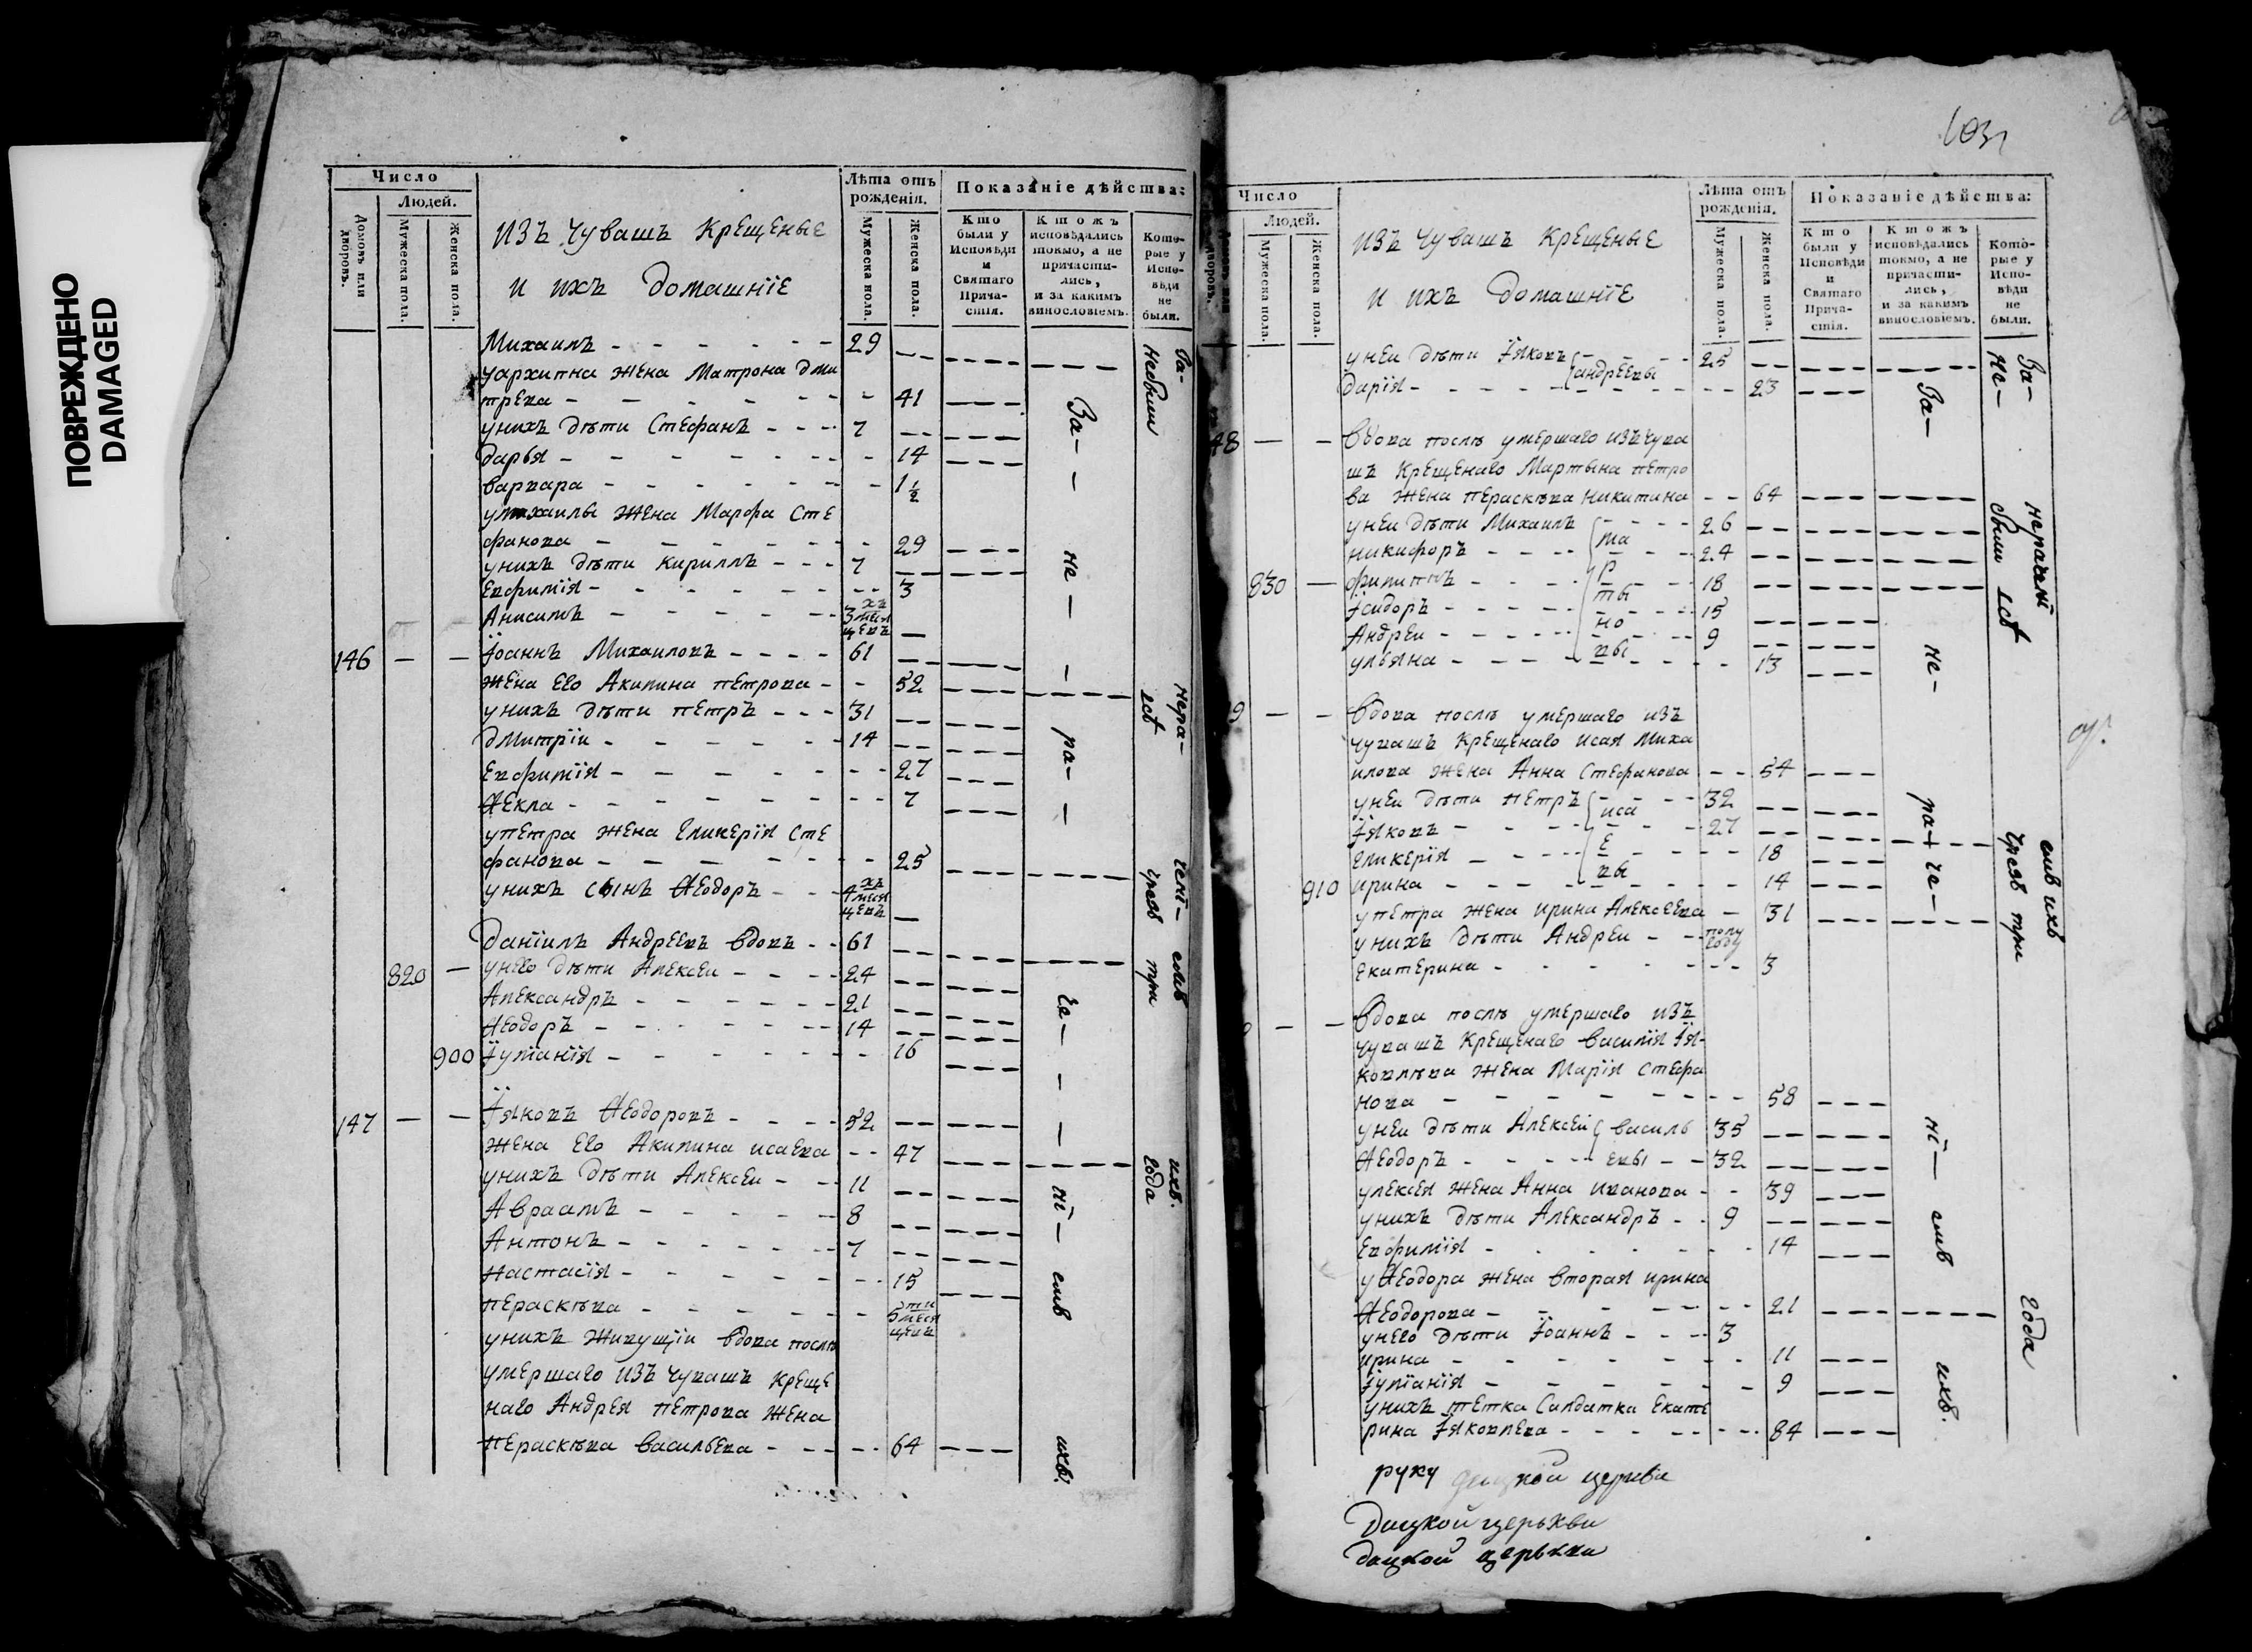 ПОВРЕЖДЕНО
DAMAGED
Число
Людей.
Домовъ или дворовъ.
Мужеска пола.
Женска пола.
изъ Чувашъ Крещеные
и ихъ домашніе
Лѣта отъ рожденія.
Мужеска пола.
Женска пола.
Показаніе дѣйства:
Кто были у Исповѣди и Святаго Причастія.
Ктожъ исповѣдались токмо, а не причастились, и за какимъ винословіемъ.
Которые у Исповѣди не были.
Михаилъ - - - - - - 29
уархипна жена Матрона дми
трева - - - - - - 41
унихъ дѣти Стефанъ - - - 7
дарья - - - - - - 14
варвара - - - - - - 1 1/2
умихаилы жена Марфа Сте
фанова - - - - - - 29
унихъ дѣти Кириллъ - - - 7
Евфимїя - - - - - - 3
Анисимъ - - - - - 3 хъ месяцевъ
146 — — Їоаннъ Михаиловъ - - - - 61
жена его Акилина петрова - - 52
унихъ дѣти петръ - - - 31
дмитрїи - - - - - - 14
Евфимїя - - - - - - 27
Ѳекла - - - - - - 7
упетра жена Гликерїя Сте
фанова - - - - - - 25
унихъ сынъ Ѳеодоръ - - - 4 хъ месяцевъ
данїилъ Андреевъ вдовъ - - 61
820 — унего дѣти Алексеи - - - - 24
Александръ - - - - - - 21
Ѳеодоръ - - - - - - 14
900 Їулїанїя - - - - - - 16
147 — — Їяковъ Ѳеодоровъ - - - - 52
жена его Акилина исаева - - 47
унихъ дѣти Алексеи - - 11
Авраамъ - - - - - 8
Антонъ - - - - - - 7
Настасїя - - - - - - 15
пераскѣва - - - - - - 5 ти месяцевъ
унихъ живущїи вдова послѣ
умершаго изъ чувашъ креще
наго Андрея петрова жена
пераскѣва васильева - - - - 64
За- не- ра- че- нї- емъ ихъ.
За- Нера- чемї- емъ ихъ.
Небыли есѣ чрезъ три года
103
Число
Людей.
дворовъ.
Мужеска пола.
Женска пола.
изъ Чувашъ Крещеные
и ихъ домашніе
Лѣта отъ рожденія.
Мужеска пола.
Женска пола.
Показаніе дѣйства:
Кто были у Исповѣди и Святаго Причастія.
Ктожъ исповѣдались токмо, а не причастились, и за какимъ винословіемъ.
Которые у Исповѣди не были.
унеи дѣти Їяковъ { андреевы - - - 25
дарїя - - - - - - 23
48 — — вдова послѣ умершаго изъ чува
шъ Крещенаго Мартына петро
ва жена пераскѣва никитина - - 64
унеи дѣти Михаилъ { ма - - - 26
никифоръ - - - - 24
830 — филиппъ - - - - { р ты - - 18
Їсидоръ - - - - - но - - 15
Андреи - - - - - - - 9
ульяна - - - - вы - - - 13
9 — — вдова послѣ умершаго изъ
чувашъ Крещенаго исая миха
илова жена Анна Стефанова - - 54
унеи дѣти петръ { иса - - - 32
Їяковъ - - - - - - 27
Гликерїя - - - - { е - - - 18
910 ирина - - - - вы - - - 14
упетра жена ирина Алексеева - 31
унихъ дѣти Андреи - - полу году
екатерина - - - - - - 3
— — вдова послѣ умершаго изъ
чувашъ Крещенаго василїя Їя-
ковлѣва жена Марїя Стефа
нова - - - - - - 58
унеи дѣти Алексей { василь 35
Ѳеодоръ - - - - евы - - 32
улексея жена Анна иванова - - 39
унихъ дѣти Александръ - - 9
Евфимїя - - - - - - 14
уѲеодора жена вторая ирина
Ѳеодорова - - - - - - 21
унего дѣти Їоаннъ - - - 3
ирина - - - - - - 11
Їулїанїя - - - - - - 9
унихъ тетка Салдатка Екате
рина Їяковлева - - - - - - 84
За- не- ра- че- нї- емъ ихъ.
За- нерачемї емъ ихъ
Не- были есѣ чрезъ три года
руку церкви
церькви